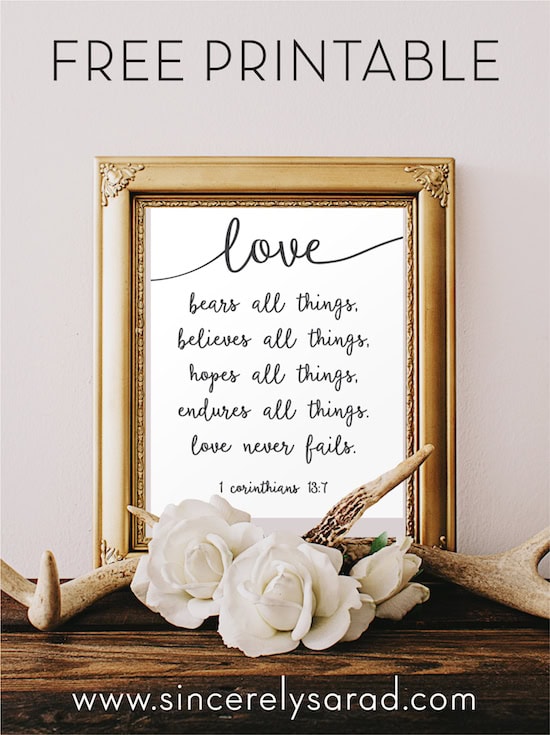 FREE PRINTABLE
love
bears all things,
believes all things,
hopes all things,
endures all things.
love never fails.
1 corinthians 13:7
www.sincerelysarad.com